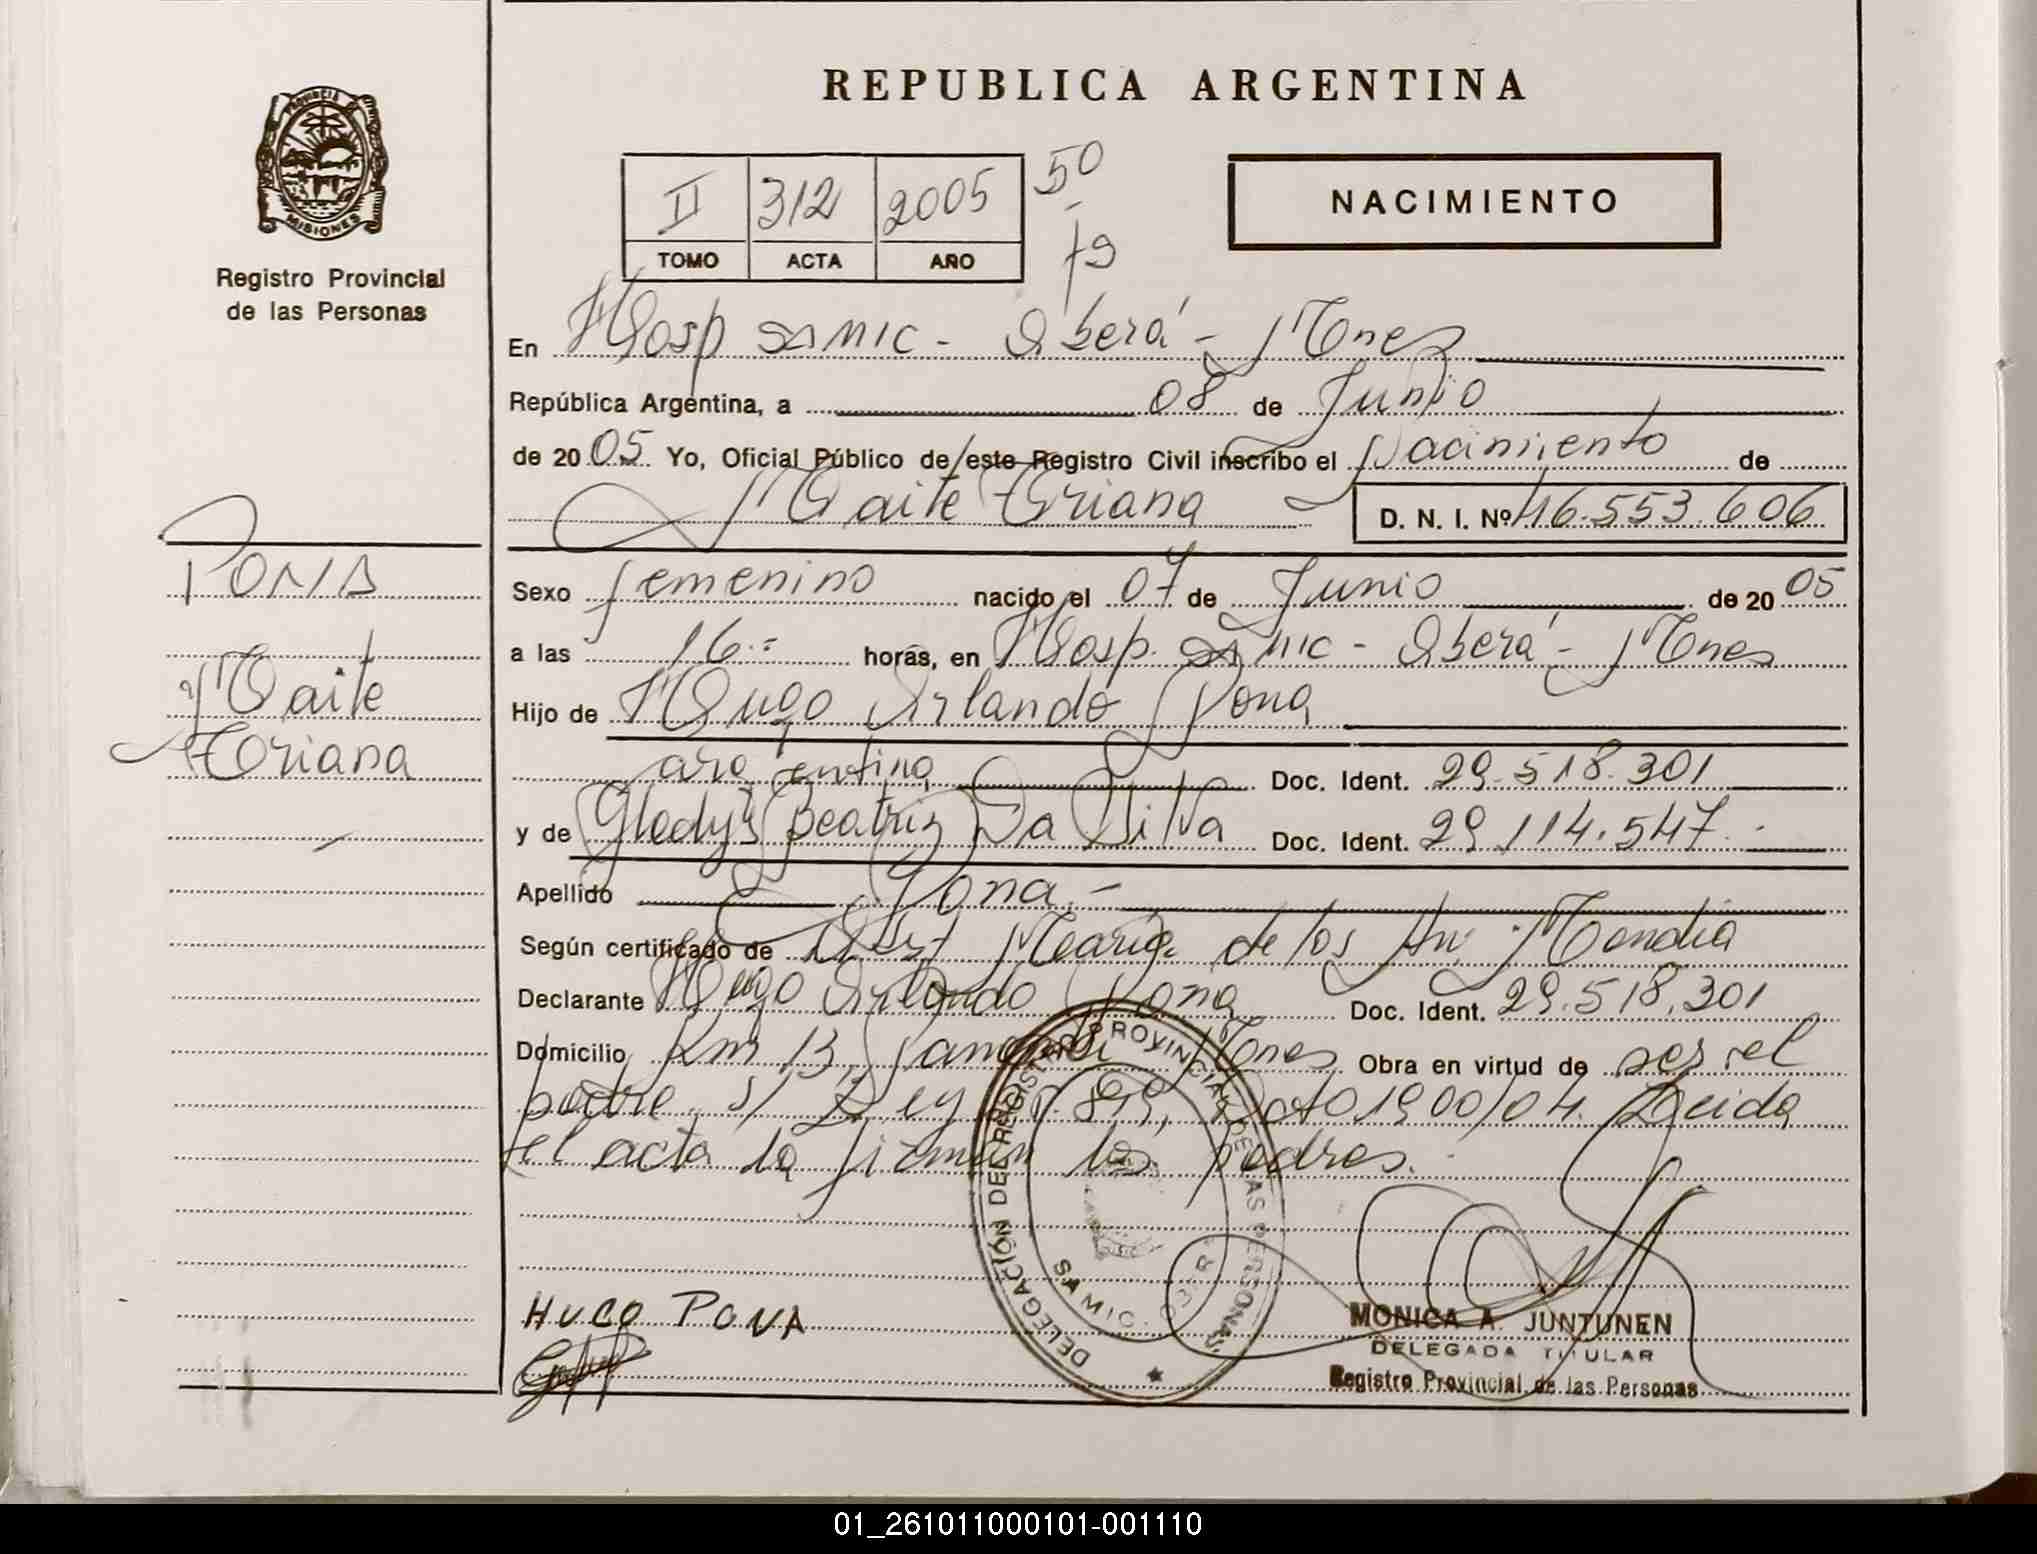 REPUBLICA ARGENTINA
PROVINCIA
MISIONES
Registro Provincial
de las Personas
II 312 2005 50
TOMO ACTA AÑO 79
NACIMIENTO
En Hosp SAMIC - Oberá - Mnes
República Argentina, a 08 de Junio
de 2005 Yo, Oficial Público de este Registro Civil inscribo el Nacimiento de
Maite Oriana D. N. I. Nº 46.553.606
PONA
Maite
Oriana
Sexo femenino nacido el 07 de Junio de 2005
a las 16.= horas, en Hosp. SAMIC - Oberá - Mnes
Hijo de Hugo Orlando Pona
argentina Doc. Ident. 29.518.301
y de Gladys Beatriz Da Silva Doc. Ident. 29.114.547.-
Apellido Pona.-
Según certificado de Obst María de los Mendia
Declarante Hugo Orlando Pona Doc. Ident. 29.518.301
Domicilio Km 13, Panambí Mnes Obra en virtud de ser el
padre s/ Ley Dcto 1900/04. Leida
el acta la firman los padres.
HUGO PONA
DELEGACIÓN DEL REGISTRO PROVINCIAL DE LAS PERSONAS
SAMIC. OBERÁ
MONICA A. JUNTUNEN
DELEGADA TITULAR
Registro Provincial de las Personas
01_261011000101-001110